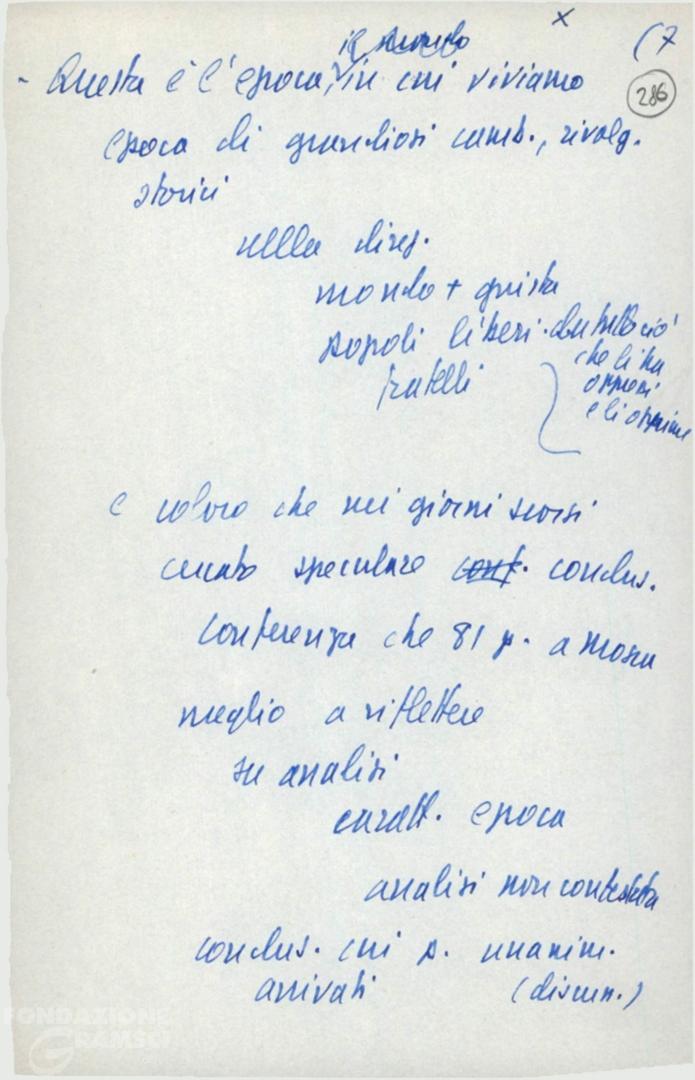 x
(7
286
il mondo
- Questa è l'epoca, in cui viviamo
epoca di grandiosi camb., rivolg.
storici
nella direz.
mondo + giusto
popoli liberi da tutto ciò
che li ha
oppressi
e li opprime
fratelli
e coloro che nei giorni scorsi
cercato speculare conf. conclus.
conferenza che 81 p. a Mosca
meglio a riflettere
su analisi
caratt. epoca
analisi non contestata
conclus. cui p. unanim.
arrivati (discus.)
FONDAZIONE
GRAMSCI